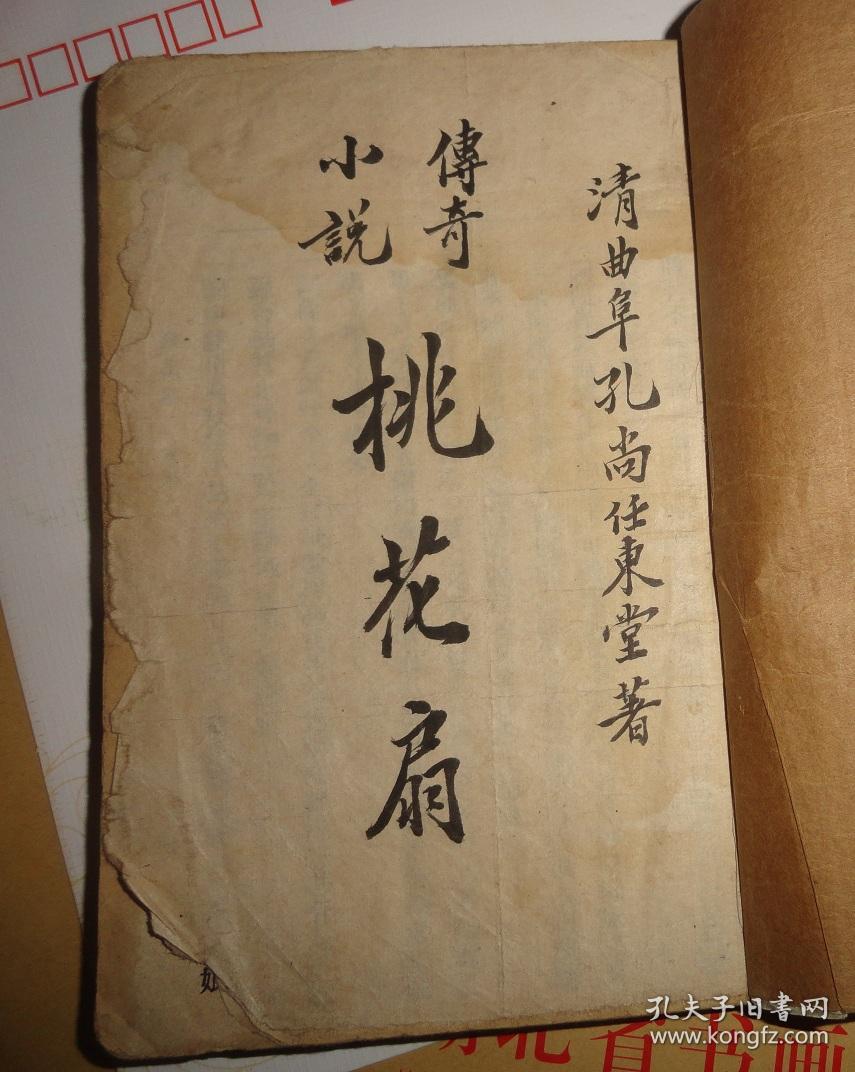 清曲阜孔尚任東堂著
傳奇
小説
桃花扇
如
孔夫子旧书网
www.kongfz.com
北省书画